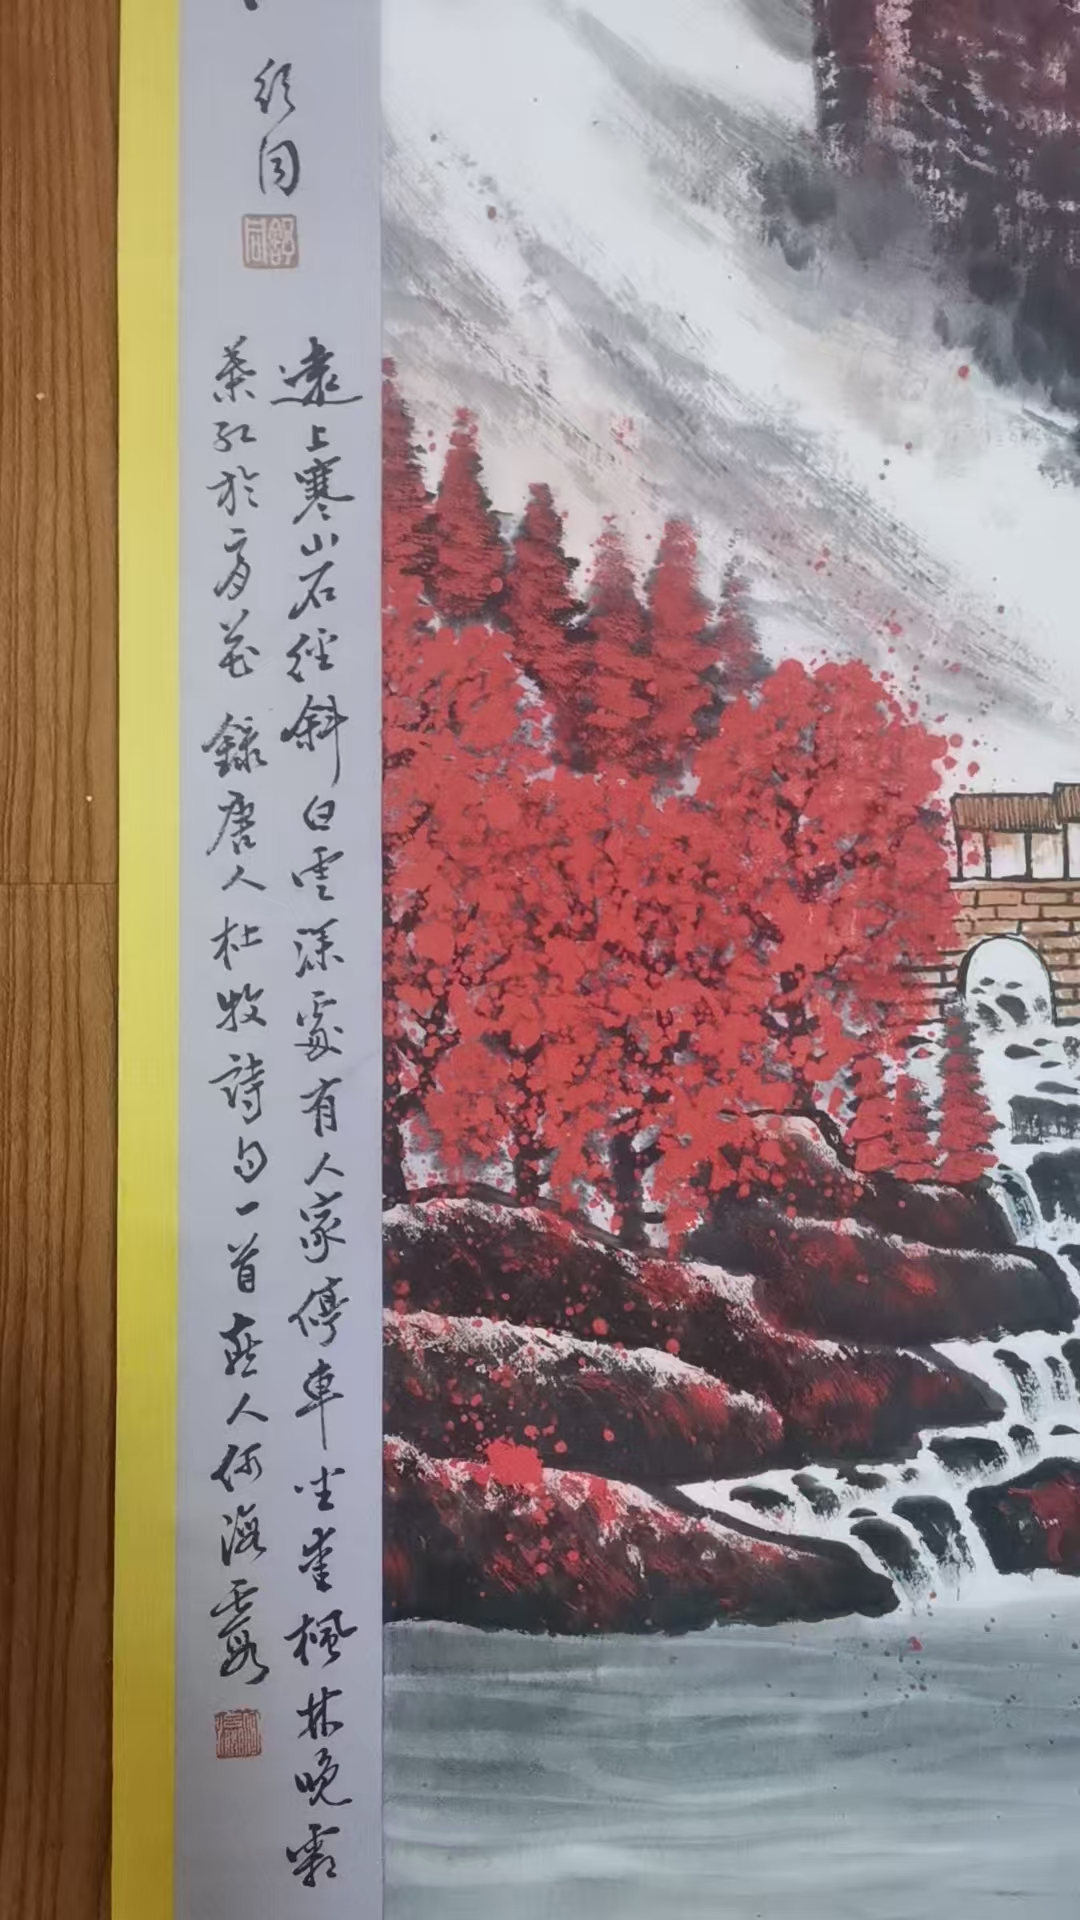 舒同
舒同
遠上寒山石徑斜白雲深處有人家停車坐愛楓林晚霜
葉紅於二月花 錄唐人杜牧詩句一首燕人何海霞